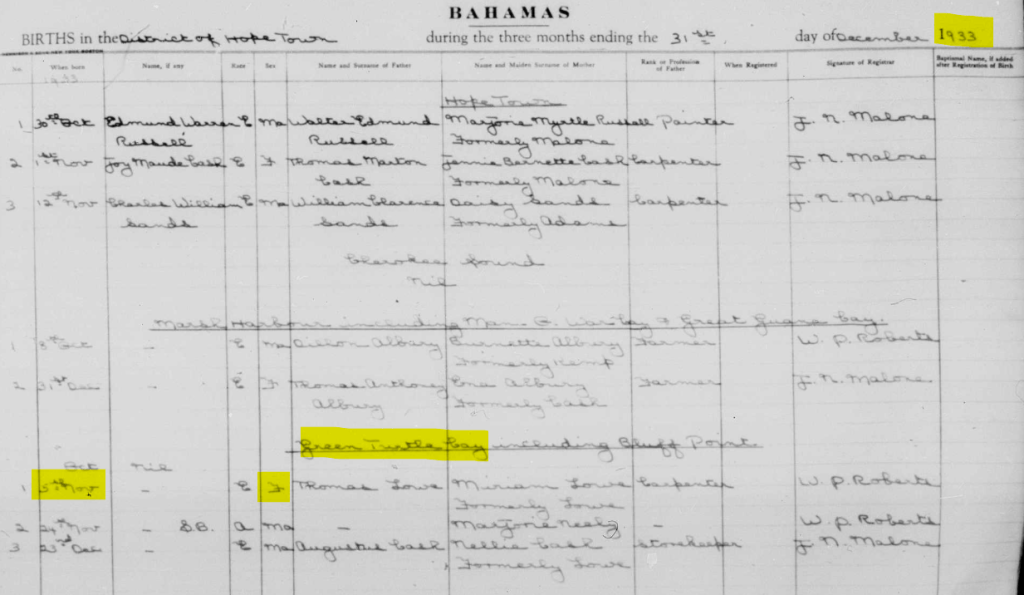 BAHAMAS
BIRTHS in the District of Hope Town during the three months ending the 31st day of December 1933
No. When born Name, if any Race Sex Name and Surname of Father Name and Maiden Surname of Mother Rank or Profession of Father When Registered Signature of Registrar Baptismal Name, if added after Registration of Birth
1933
Hope Town
1 30th Oct Edmund Warren E Ma Walter Edmund Marjorie Myrtle Russell Painter J. N. Malone
Russell Russell Formerly Malone
2 1st Nov Joy Maude Cash E F Thomas Marton Jennie Burnette Cash Carpenter J. N. Malone
Cash Formerly Malone
3 12th Nov Charles William E Ma William Clarence Daisy Sands Carpenter J. N. Malone
Sands Sands Formerly Adams
Cherokee Sound
Nil
Marsh Harbour including Man O. War Cay & Great Guana Cay.
1 8th Oct – E Ma Dillon Albury Burnette Albury Farmer W. P. Roberts
Formerly Kemp
2 31st Dec – E F Thomas Anthony Ena Albury Farmer J. N. Malone
Albury Formerly Cash
Green Turtle Cay including Bluff Point.
Oct Nil
1 5th Nov – E F Thomas Lowe Miriam Lowe Carpenter W. P. Roberts
Formerly Lowe
2 24th Nov – S.B. A Ma – Marjorie Neely – W. P. Roberts
3 23rd Dec – E Ma Augustus Cash Nellie Cash Storekeeper J. N. Malone
Formerly Lowe